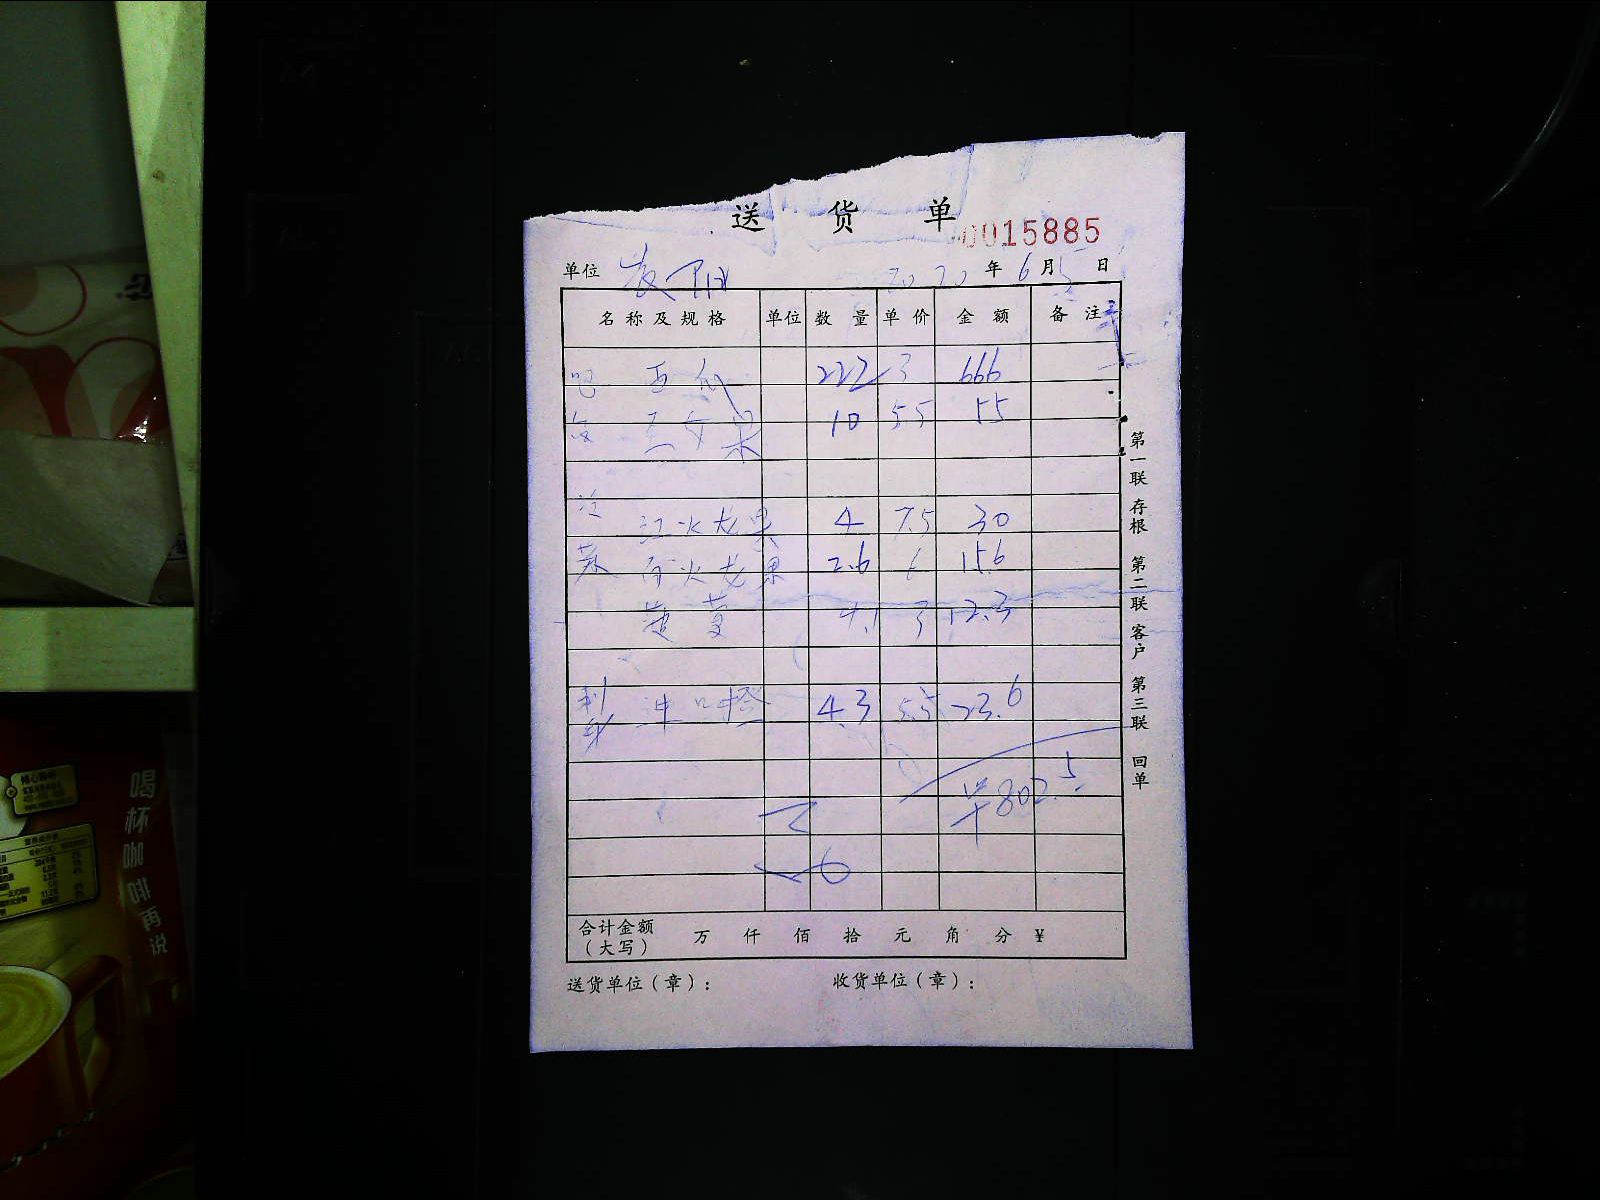 送 货 单
0015885
单位 2020 年 6 月 5 日
名称及规格 单位 数量 单价 金额 备注
吧 西瓜 222 3 666
圣女果 10 5.5 55
冷 红火龙果 4 7.5 30
菜 白火龙果 2.6 6 15.6
菠萝 4.1 3 12.3
刺身 进口橙 4.3 5.5 23.6
¥802.5
合计金额
（大写） 万 仟 佰 拾 元 角 分 ¥
送货单位（章）： 收货单位（章）：
第一联 存根 第二联 客户 第三联 回单
喝杯咖啡再说